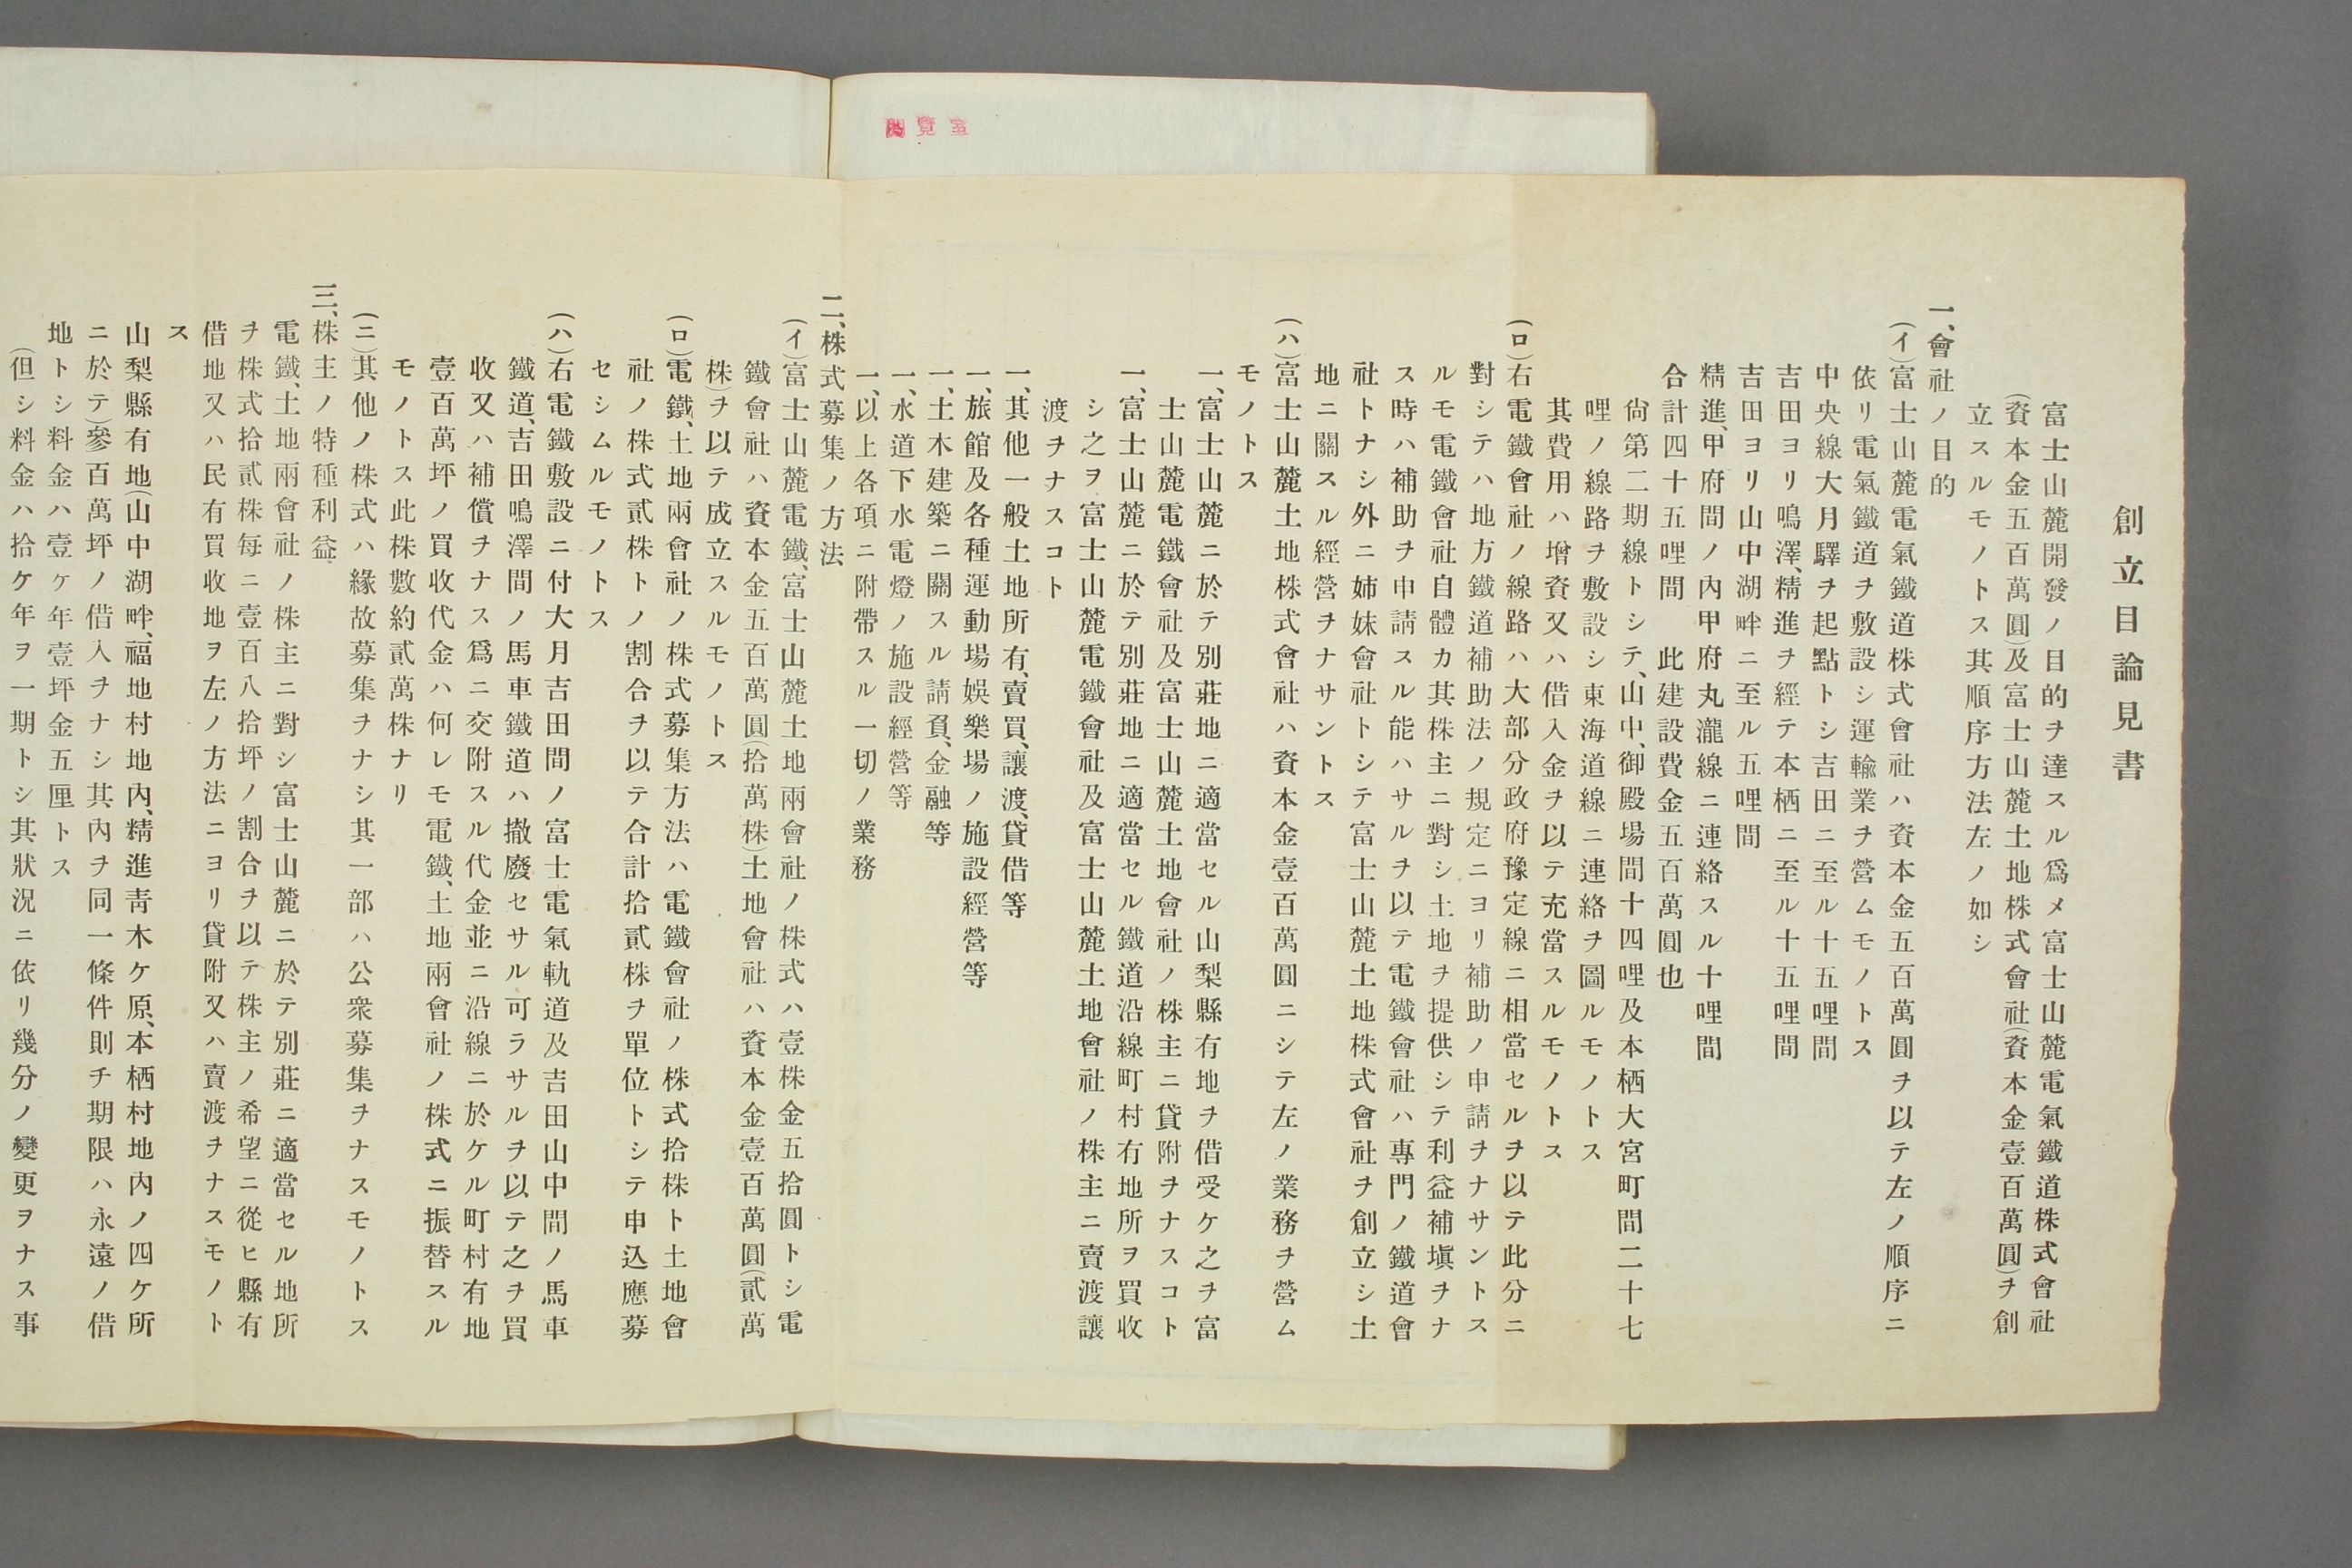 閲覽室
創立目論見書
富士山麓開發ノ目的ヲ達スル爲メ富士山麓電氣鐵道株式會社
(資本金五百萬圓)及富士山麓土地株式會社(資本金壹百萬圓)ヲ創
立スルモノトス其順序方法左ノ如シ
一、會社ノ目的
(イ)富士山麓電氣鐵道株式會社ハ資本金五百萬圓ヲ以テ左ノ順序ニ
依リ電氣鐵道ヲ敷設シ運輸業ヲ營ムモノトス
中央線大月驛ヲ起點トシ吉田ニ至ル十五哩間
吉田ヨリ鳴澤、精進ヲ經テ本栖ニ至ル十五哩間
吉田ヨリ山中湖畔ニ至ル五哩間
精進、甲府間ノ內甲府丸瀧線ニ連絡スル十哩間
合計四十五哩間　此建設費金五百萬圓也
尙第二期線トシテ、山中、御殿場間十四哩及本栖大宮町間二十七
哩ノ線路ヲ敷設シ東海道線ニ連絡ヲ圖ルモノトス
其費用ハ增資又ハ借入金ヲ以テ充當スルモノトス
(ロ)右電鐵會社ノ線路ハ大部分政府豫定線ニ相當セルヲ以テ此分ニ
對シテハ地方鐵道補助法ノ規定ニヨリ補助ノ申請ヲナサントス
ルモ電鐵會社自體カ其株主ニ對シ土地ヲ提供シテ利益補塡ヲナ
ス時ハ補助ヲ申請スル能ハサルヲ以テ電鐵會社ハ專門ノ鐵道會
社トナシ外ニ姉妹會社トシテ富士山麓土地株式會社ヲ創立シ土
地ニ關スル經營ヲナサントス
(ハ)富士山麓土地株式會社ハ資本金壹百萬圓ニシテ左ノ業務ヲ營ム
モノトス
一、富士山麓ニ於テ別莊地ニ適當セル山梨縣有地ヲ借受ケ之ヲ富
士山麓電鐵會社及富士山麓土地會社ノ株主ニ貸附ヲナスコト
一、富士山麓ニ於テ別莊地ニ適當セル鐵道沿線町村有地所ヲ買收
シ之ヲ富士山麓電鐵會社及富士山麓土地會社ノ株主ニ賣渡讓
渡ヲナスコト
一、其他一般土地所有、賣買、讓渡、貸借等
一、旅館及各種運動場娛樂場ノ施設經營等
一、土木建築ニ關スル請負、金融等
一、水道下水電燈ノ施設經營等
一、以上各項ニ附帶スル一切ノ業務
二、株式募集ノ方法
(イ)富士山麓電鐵、富士山麓土地兩會社ノ株式ハ壹株金五拾圓トシ電
鐵會社ハ資本金五百萬圓(拾萬株)土地會社ハ資本金壹百萬圓(貳萬
株)ヲ以テ成立スルモノトス
(ロ)電鐵、土地兩會社ノ株式募集方法ハ電鐵會社ノ株式拾株ト土地會
社ノ株式貳株トノ割合ヲ以テ合計拾貳株ヲ單位トシテ申込應募
セシムルモノトス
(ハ)右電鐵敷設ニ付大月吉田間ノ富士電氣軌道及吉田山中間ノ馬車
鐵道、吉田鳴澤間ノ馬車鐵道ハ撤廢セサル可ラサルヲ以テ之ヲ買
收又ハ補償ヲナス爲ニ交附スル代金並ニ沿線ニ於ケル町村有地
壹百萬坪ノ買收代金ハ何レモ電鐵、土地兩會社ノ株式ニ振替スル
モノトス此株數約貳萬株ナリ
(ニ)其他ノ株式ハ緣故募集ヲナシ其一部ハ公衆募集ヲナスモノトス
三、株主ノ特種利益
電鐵、土地兩會社ノ株主ニ對シ富士山麓ニ於テ別莊ニ適當セル地所
ヲ株式拾貳株每ニ壹百八拾坪ノ割合ヲ以テ株主ノ希望ニ從ヒ縣有
借地又ハ民有買收地ヲ左ノ方法ニヨリ貸附又ハ賣渡ヲナスモノト
ス
山梨縣有地(山中湖畔、福地村地內、精進靑木ケ原、本栖村地內ノ四ケ所
ニ於テ)參百萬坪ノ借入ヲナシ其內ヲ同一條件則チ期限ハ永遠ノ借
地トシ料金ハ壹ケ年壹坪金五厘トス
(但シ料金ハ拾ケ年ヲ一期トシ其狀況ニ依リ幾分ノ變更ヲナス事